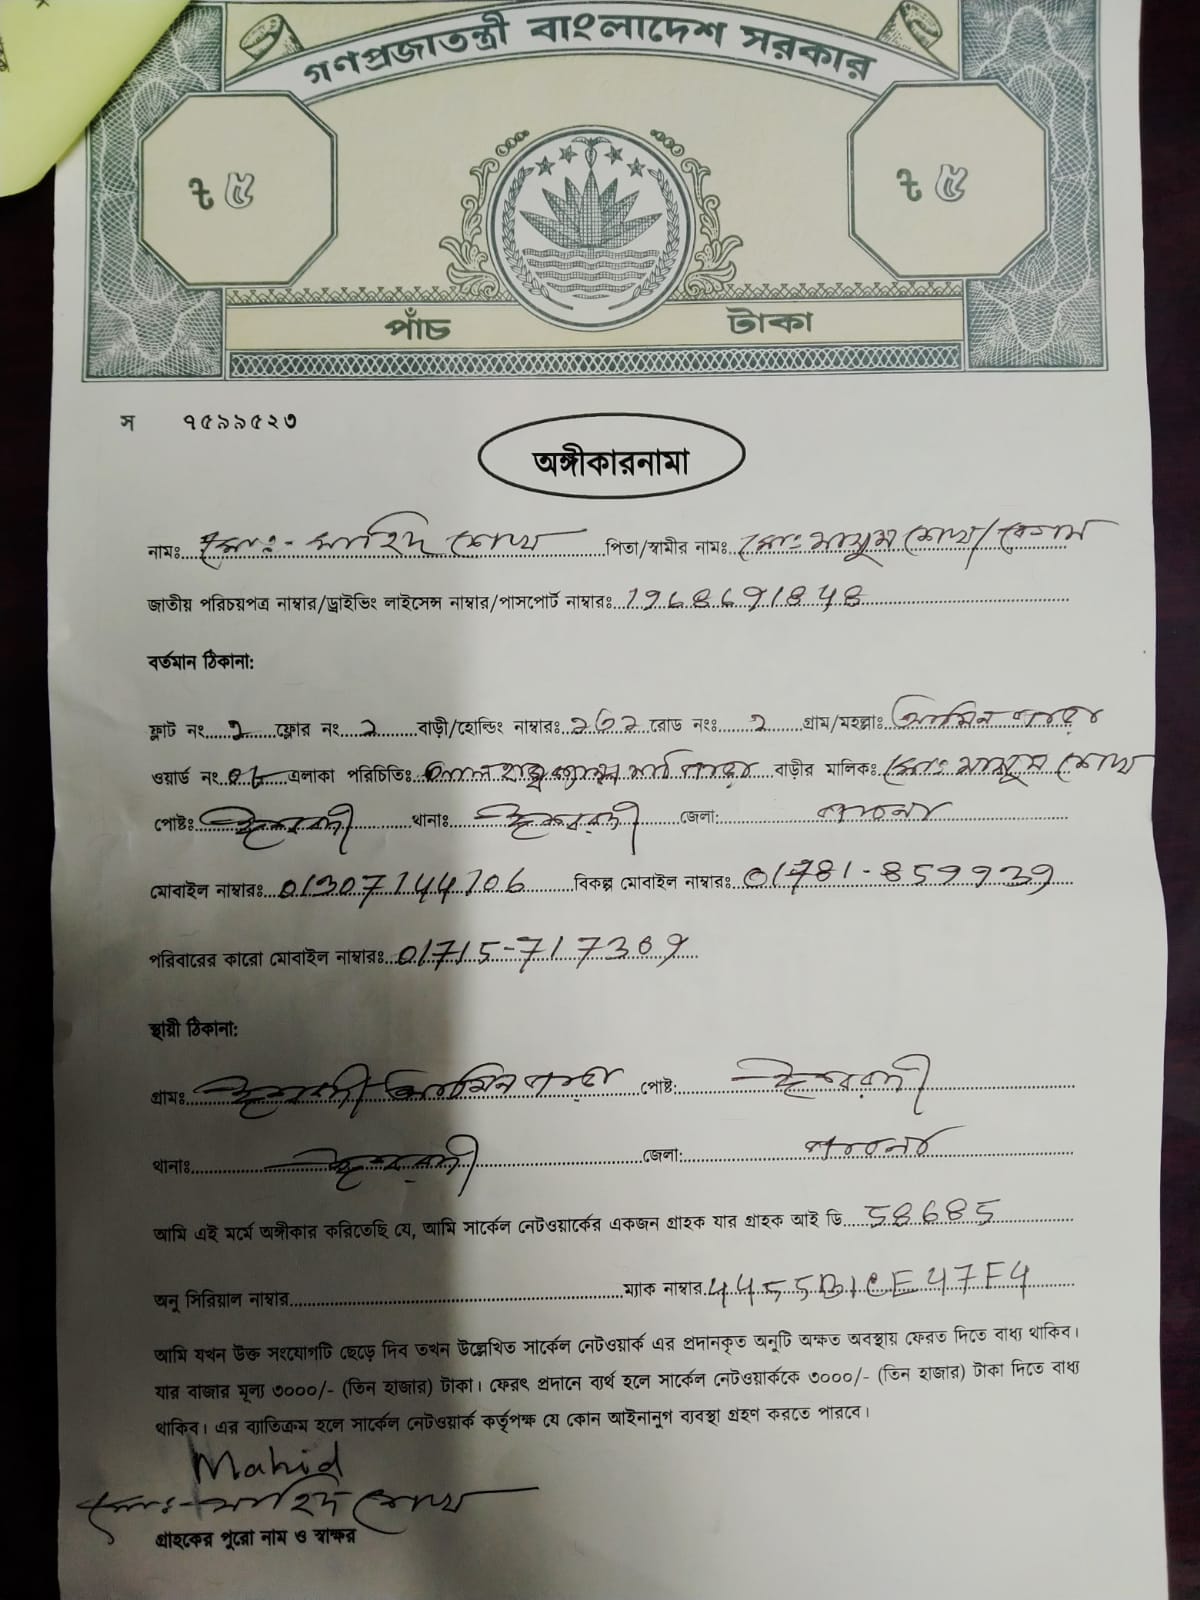 গণপ্রজাতন্ত্রী বাংলাদেশ সরকার
৳ ৫ ৳ ৫
পাঁচ টাকা
স ৭৫৯৯৫২৩
অঙ্গীকারনামা
নামঃ মোঃ- মাহিদ শেখ পিতা/স্বামীর নামঃ মোঃ মাসুম শেখ/
জাতীয় পরিচয়পত্র নাম্বার/ড্রাইভিং লাইসেন্স নাম্বার/পাসপোর্ট নাম্বারঃ 1968691848
বর্তমান ঠিকানা:
ফ্লাট নং 2 ফ্লোর নং 2 বাড়ী/হোল্ডিং নাম্বারঃ রোড নংঃ 2 গ্রাম/মহল্লাঃ আমিন পাড়া
ওয়ার্ড নং এলাকা পরিচিতিঃ বাড়ীর মালিকঃ মোঃ মাসুম শেখ
পোষ্টঃ ঈশ্বরদী থানাঃ ঈশ্বরদী জেলা: পাবনা
মোবাইল নাম্বারঃ 01307144106 বিকল্প মোবাইল নাম্বারঃ 01781-859939
পরিবারের কারো মোবাইল নাম্বারঃ 01715-717369
স্থায়ী ঠিকানা:
গ্রামঃ ঈশ্বরদী আমিন পাড়া পোষ্ট: ঈশ্বরদী
থানাঃ ঈশ্বরদী জেলা: পাবনা
আমি এই মর্মে অঙ্গীকার করিতেছি যে, আমি সার্কেল নেটওয়ার্কের একজন গ্রাহক যার গ্রাহক আই ডি 58685
অনু সিরিয়াল নাম্বার ম্যাক নাম্বার 4455B1CE47F4
আমি যখন উক্ত সংযোগটি ছেড়ে দিব তখন উল্লেখিত সার্কেল নেটওয়ার্ক এর প্রদানকৃত অনুটি অক্ষত অবস্থায় ফেরত দিতে বাধ্য থাকিব।
যার বাজার মূল্য ৩০০০/- (তিন হাজার) টাকা। ফেরৎ প্রদানে ব্যর্থ হলে সার্কেল নেটওয়ার্ককে ৩০০০/- (তিন হাজার) টাকা দিতে বাধ্য
থাকিব। এর ব্যাতিক্রম হলে সার্কেল নেটওয়ার্ক কর্তৃপক্ষ যে কোন আইনানুগ ব্যবস্থা গ্রহণ করতে পারবে।
Mahid
মোঃ-মাহিদ শেখ
গ্রাহকের পুরো নাম ও স্বাক্ষর